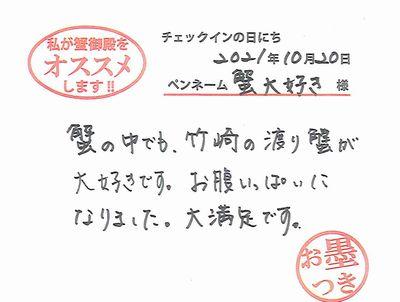 私が蟹御殿を
オススメ
します!!
チェックインの日にち
2021年10月20日
ペンネーム 蟹大好き 様
蟹の中でも、竹崎の渡り蟹が
大好きです。お腹いっぱいに
なりました。大満足です。
お墨
つき